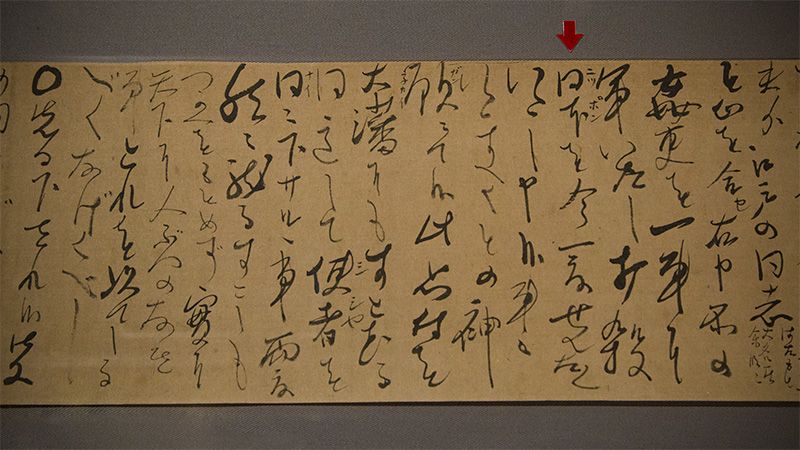 夫より江戸の同志はたもと大名其余段々
と心を合セ右申所の
姦吏を一事に
軍いたし打殺
日本を今一度せんたく
ニツポン
いたし申候事ニ
いたすべくとの神
願ニて候此思付を
大藩にもすこむる
同意して使者を
内々下サルヽ事両度
然ニ龍馬すこしも
つかへをもとめず実に
天下に人ぶつのなき
事これを以てしる
べくなげくべし
○先日下され候御文